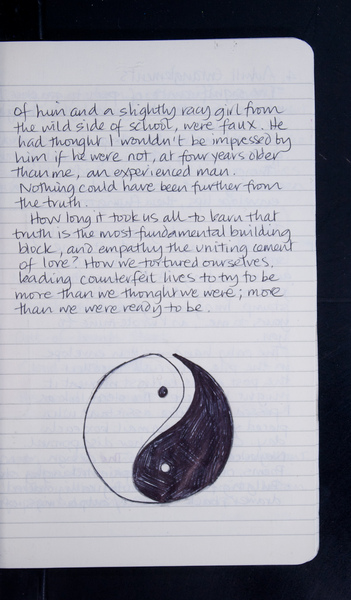 of him and a slightly racy girl from
the wild side of school, were faux. He
had thought I wouldn't be impressed by
him if he were not, at four years older
than me, an experienced man.
Nothing could have been further from
the truth.
How long it took us all to learn that
truth is the most fundamental building
block, and empathy the uniting cement
of love? How we tortured ourselves,
leading counterfeit lives to try to be
more than we thought we were; more
than we were ready to be.